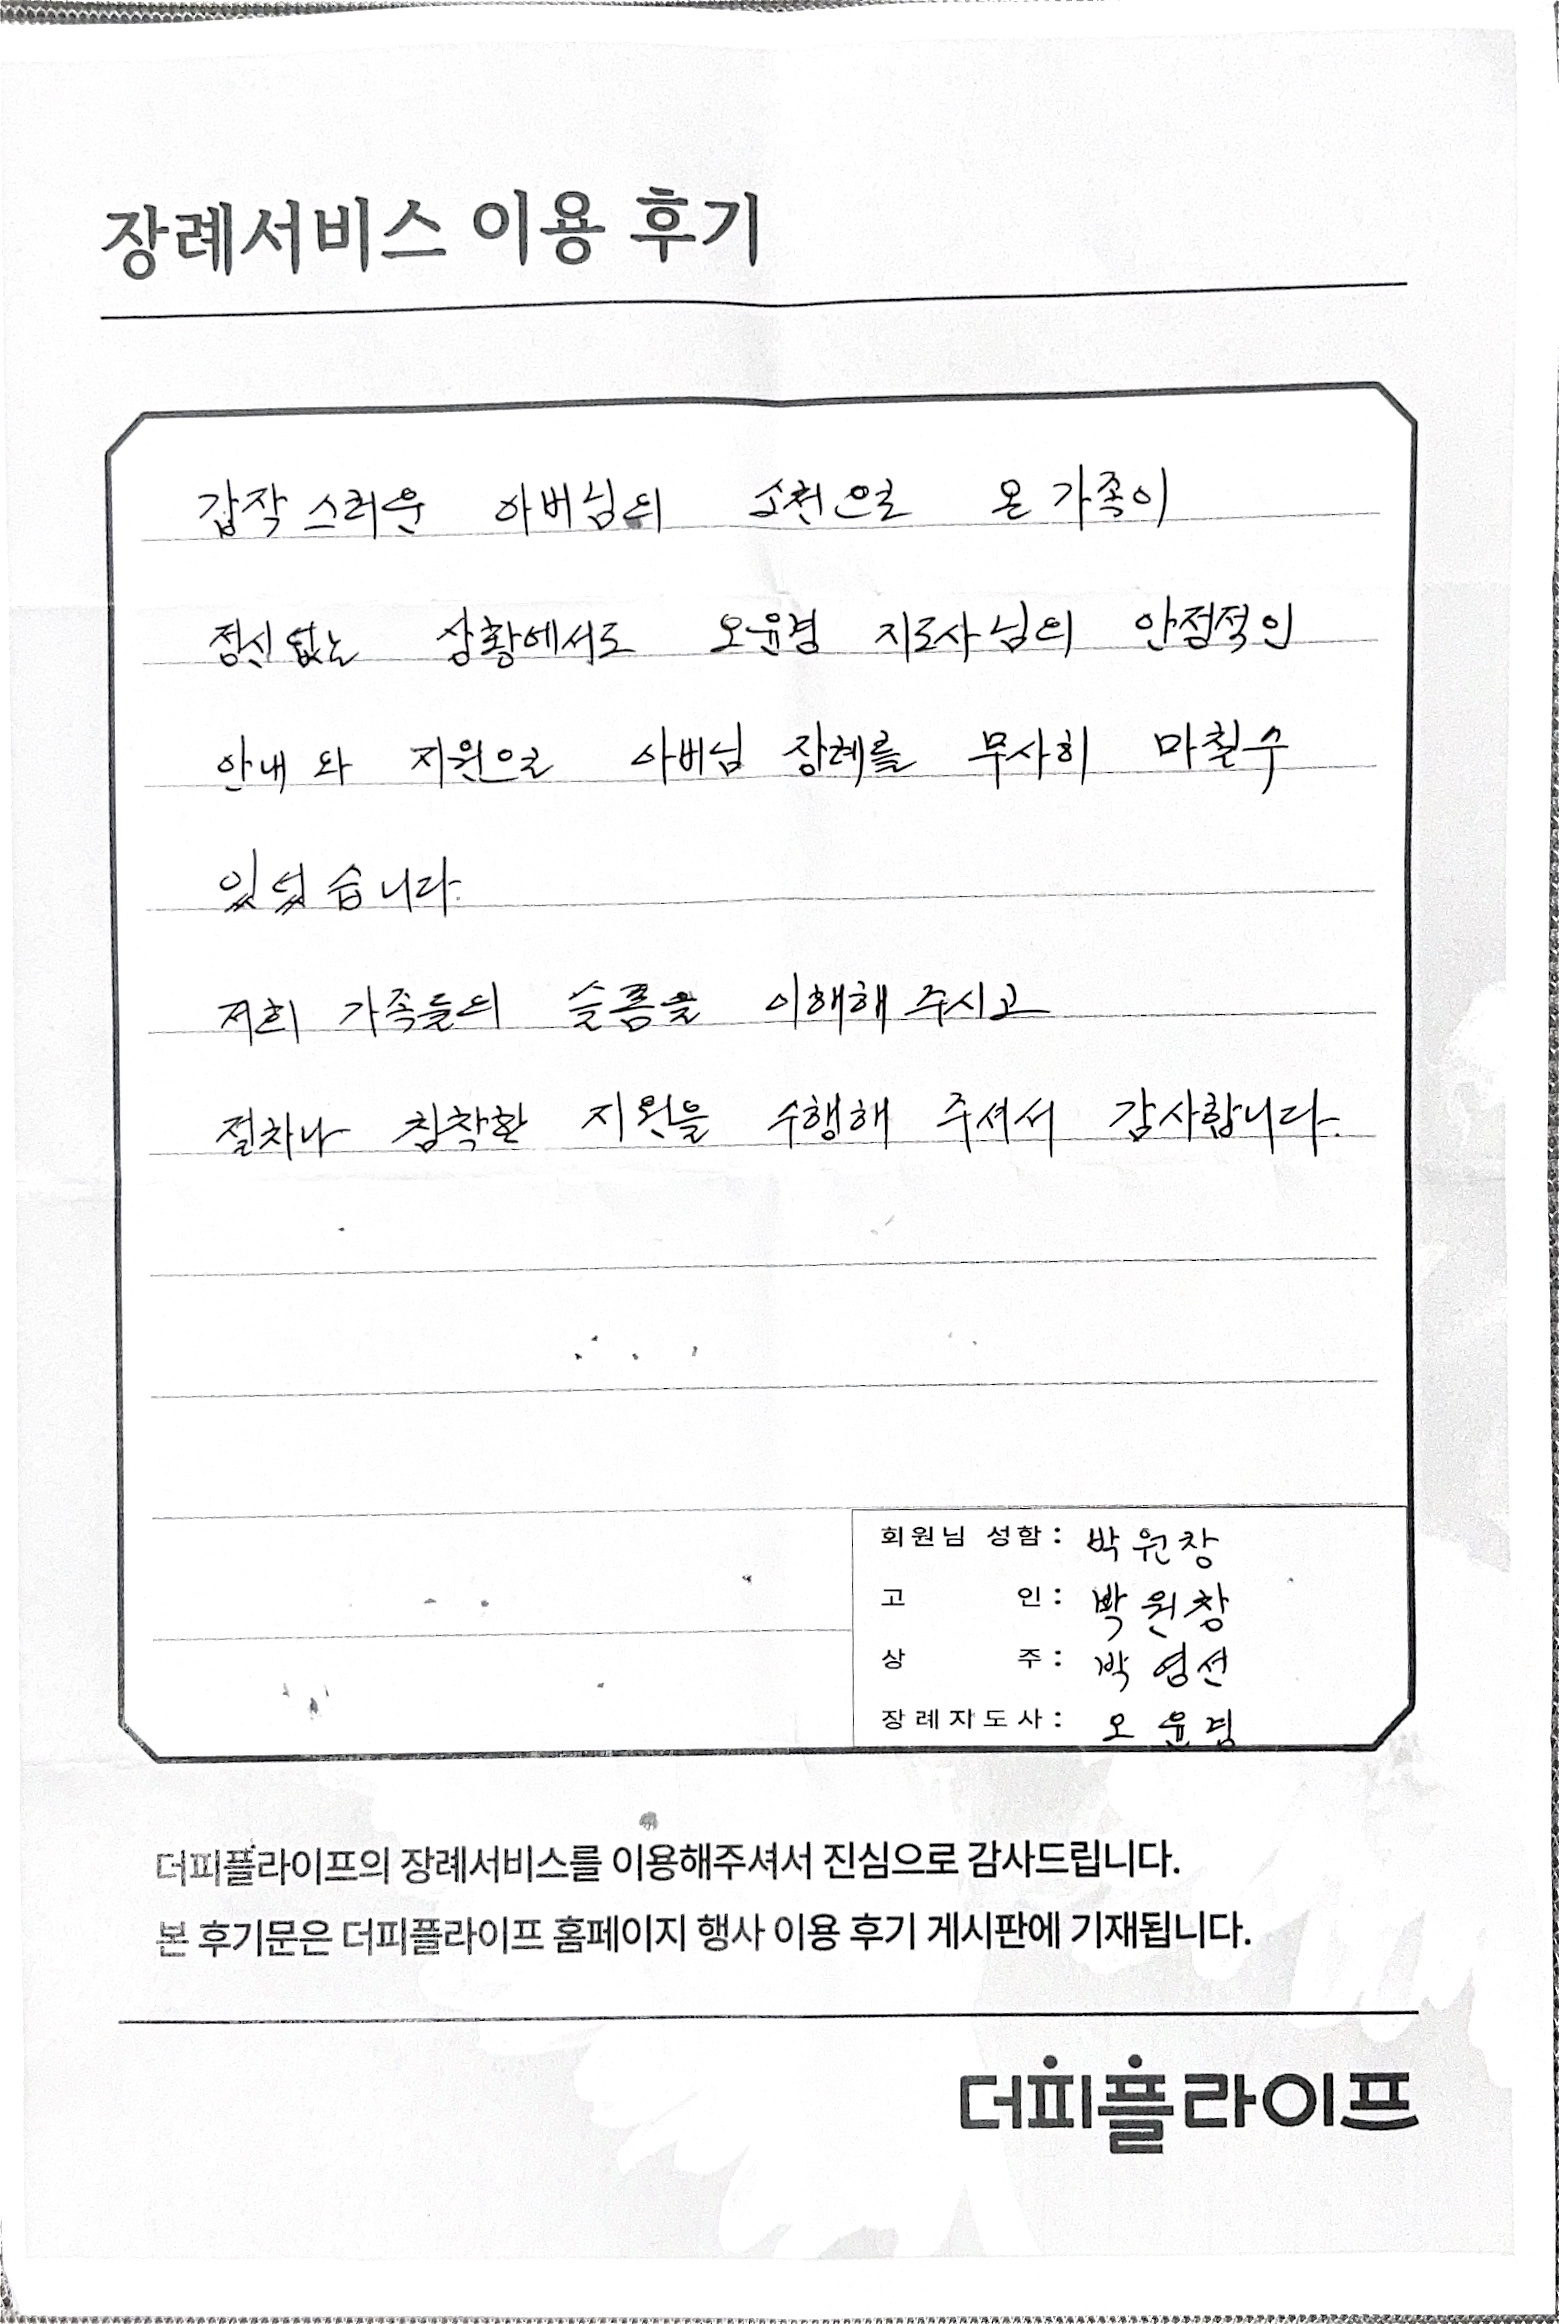 장례서비스 이용 후기
갑작스러운 아버님의 소천으로 온 가족이
정신없는 상황에서도 오윤경 지도사님의 안정적인
안내와 지원으로 아버님 장례를 무사히 마칠수
있었습니다.
저희 가족들의 슬픔을 이해해 주시고
절차나 침착한 지원을 수행해 주셔서 감사합니다.
회원님 성함 : 박원창
고 인 : 박원창
상 주 : 박영선
장례지도사 : 오윤경
더피플라이프의 장례서비스를 이용해주셔서 진심으로 감사드립니다.
본 후기문은 더피플라이프 홈페이지 행사 이용 후기 게시판에 기재됩니다.
더피플라이프